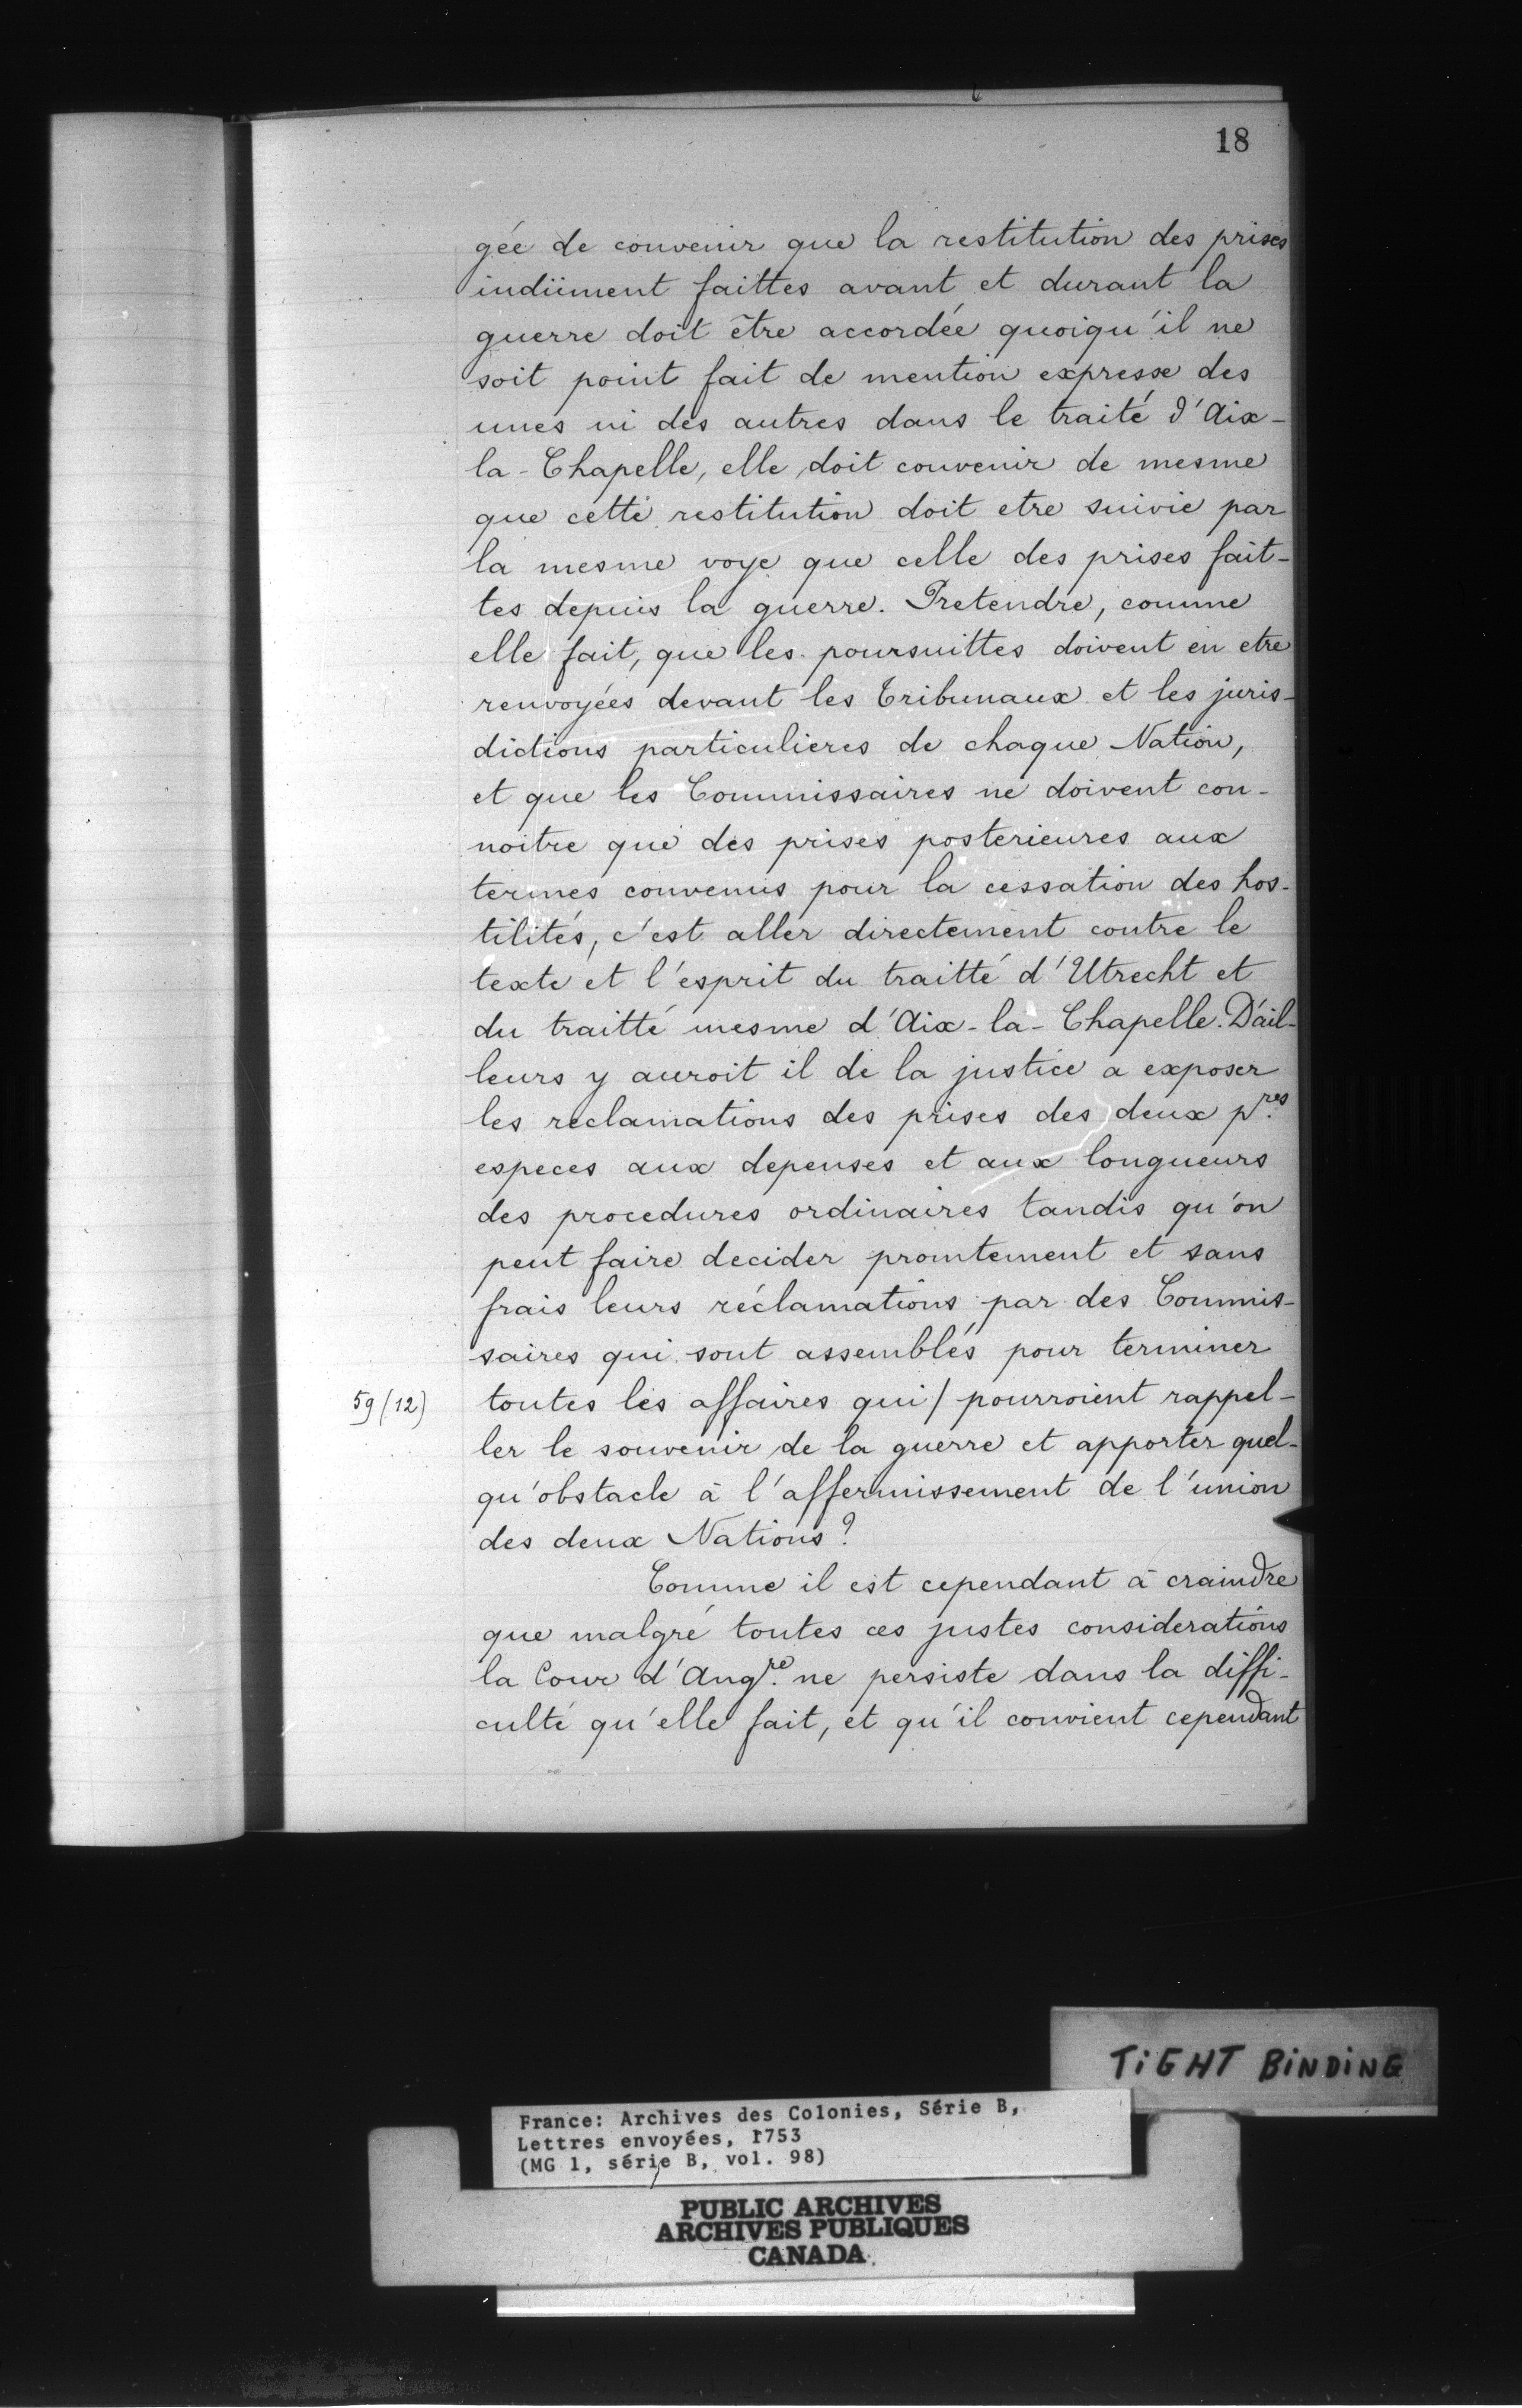 18
gée de convenir que la restitution des prises
indüment faittes avant et durant la
guerre doit être accordée quoiqu'il ne
soit point fait de mention expresse des
unes ni des autres dans le traité d'Aix-
la-Chapelle, elle doit convenir de mesme
que cette restitution doit etre suivie par
la mesme voye que celle des prises fait-
tes depuis la guerre. Pretendre, comme
elle fait, que les poursuittes doivent en etre
renvoyées devant les Tribunaux et les juris-
dictions particulieres de chaque Nation,
et que les Commissaires ne doivent con-
noitre que des prises posterieures aux
termes convenus pour la cessation des hos-
tilités, c'est aller directement contre le
texte et l'esprit du traitté d'Utrecht et
du traitté mesme d'Aix-la-Chapelle. D'ail-
leurs y auroit il de la justice a exposer
les reclamations des prises des deux p.res
especes aux depenses et aux longueurs
des procedures ordinaires tandis qu'on
peut faire decider promtement et sans
frais leurs réclamations par des Commis-
saires qui sont assemblés pour terminer
59 (12) toutes les affaires qui / pourroient rappel-
ler le souvenir de la guerre et apporter quel-
qu'obstacle à l'affermissement de l'union
des deux Nations?
Comme il est cependant à craindre
que malgré toutes ces justes considerations
la Cour d'Ang.re ne persiste dans la diffi-
culté qu'elle fait, et qu'il convient cependant
TIGHT BINDING
France: Archives des Colonies, Série B,
Lettres envoyées, 1753
(MG 1, série B, vol. 98)
PUBLIC ARCHIVES
ARCHIVES PUBLIQUES
CANADA